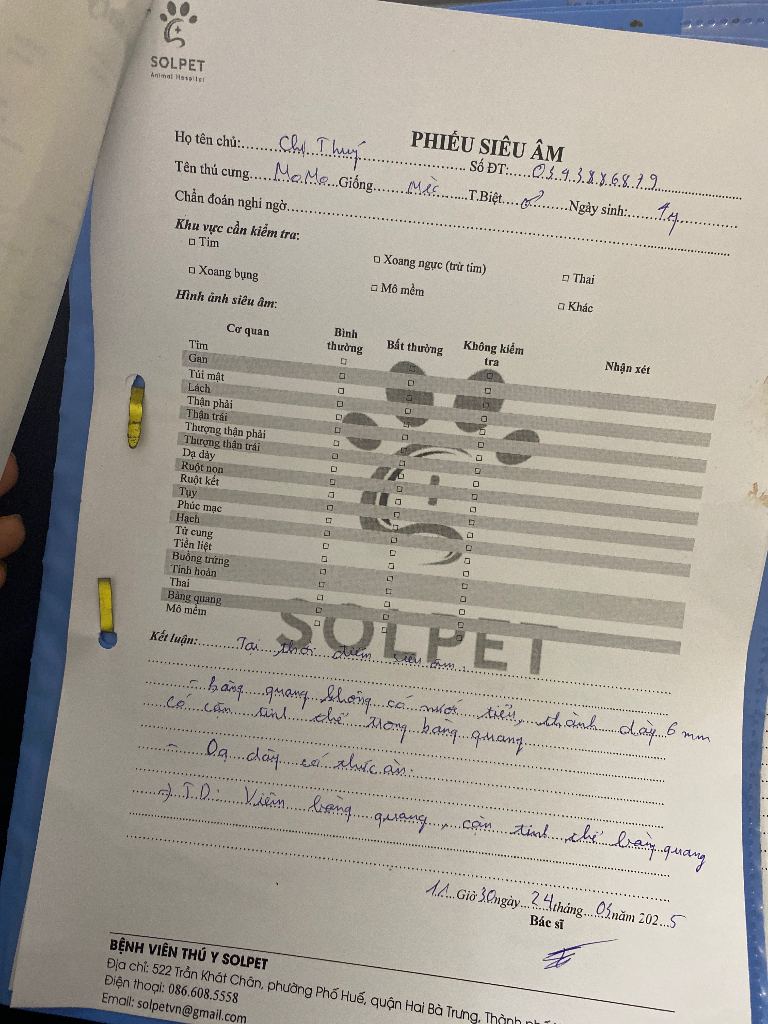 SOLPET
Animal Hospital
PHIẾU SIÊU ÂM
Họ tên chủ: Chị Thuý Số ĐT: 0393886879
Tên thú cưng MoMo Giống Mèo T.Biệt ♂ Ngày sinh: 1y
Chẩn đoán nghi ngờ
Khu vực cần kiểm tra:
□ Tim □ Xoang ngực (trừ tim) □ Thai
□ Xoang bụng □ Mô mềm □ Khác
Hình ảnh siêu âm:
Cơ quan Bình thường Bất thường Không kiểm tra Nhận xét
Tim □ □ □
Gan □ □ □
Túi mật □ □ □
Lách □ □ □
Thận phải □ □ □
Thận trái □ □ □
Thượng thận phải □ □ □
Thượng thận trái □ □ □
Dạ dày □ □ □
Ruột non □ □ □
Ruột kết □ □ □
Tụy □ □ □
Phúc mạc □ □ □
Hạch □ □ □
Tử cung □ □ □
Tiền liệt □ □ □
Buồng trứng □ □ □
Tinh hoàn □ □ □
Thai □ □ □
Bàng quang □ □ □
Mô mềm □ □ □
SOLPET
Kết luận: Tại thời điểm siêu âm:
- Bàng quang không có nước tiểu, thành dày 6 mm
có cặn tinh thể trong bàng quang
- Dạ dày có thức ăn.
=> T.D: Viêm bàng quang, cặn tinh thể bàng quang
11 Giờ 30 ngày 24 tháng 03 năm 2025
Bác sĩ
BỆNH VIỆN THÚ Y SOLPET
Địa chỉ: 522 Trần Khát Chân, phường Phố Huế, quận Hai Bà Trưng, Thành
Điện thoại: 086.608.5558
Email: solpetvn@gmail.com